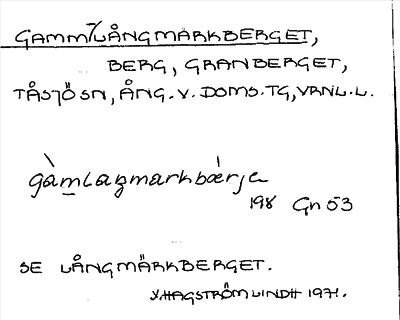 GAMM/LÅNGMÄRKBERGET,
BERG, GRANBERGET,
TÅSJÖ SN, ÅNG. V. DOMS. TG, VRNL. L.
gàmlaŋmarkbærje
198 Gn 53
SE LÅNGMÄRKBERGET.
HAGSTRÖM LINDH 1971.